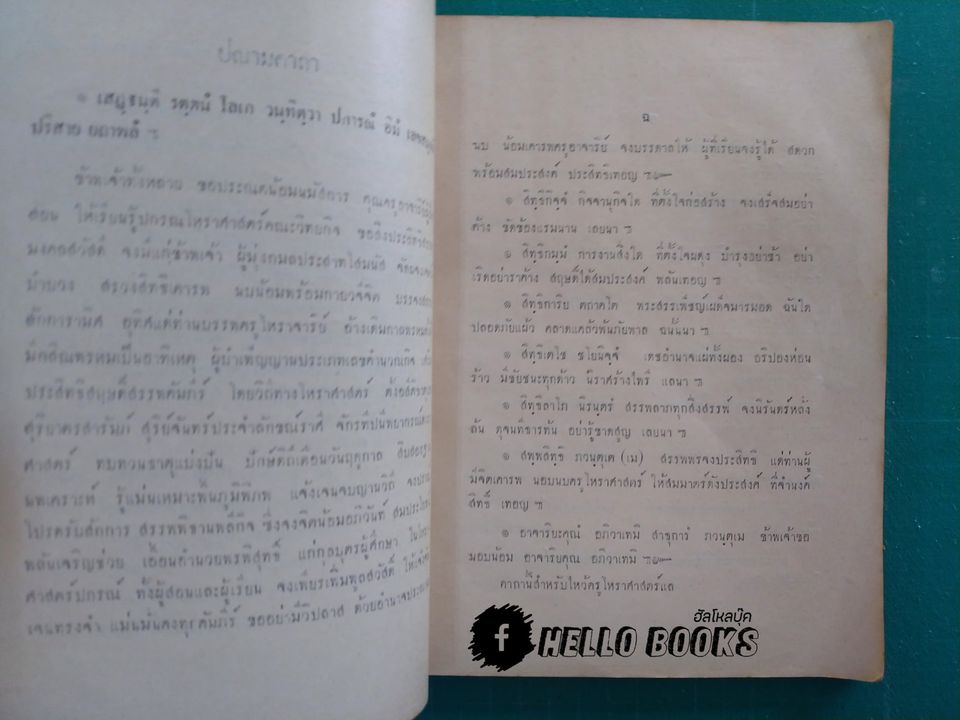 ๑ เสฏฺฐนฺติ รตฺตนํ โลเก วนฺทิตฺวา ปการณํ อิมํ
ปริสาย
ข้าพเจ้าทั้งหลาย ขอประณตน้อมนมัสการ คุณครูอาจารย์
สอน ให้เรียนรู้ปกรณ์โหราศาสตร์คณะวิทยกิจ
มงคลสวัสดิ์ จงมีแก่ข้าพเจ้า ผู้มุ่งกมลประสาทโสมนัส
บำบวง สรวงสิทธิเคารพ นบน้อมพร้อมกายวจีจิต
สักการามิศ อุทิศแด่ท่านบรรพครูโหราจารย์ อ้างเดิม
ผู้บำเพ็ญญานประเภทเลขคำนวณกิจ
ประสิทธิสฤษดิ์สรรพคัมภีร์ โดยวิถีทางโหราศาสตร์
สุริยาตรสารัมภ์ สุริย์จันทร์ประจำลักขณ์ราศี
ศาสตร์ ทบทวนธาตุแบ่งปัน ปักษ์ดิถีเดือนวันฤดูกาล
นพเคราะห์ รู้แม่นเหมาะพื้นภูมิพิภพ แจ้งเจนจบญานวิถี
โปรดรับสักการ สรรพพิธานพลีกิจ ซึ่งจงจิตน้อมอภิวันท์
พลันเจริญช่วย เอื้ออำนวยพรพิสุทธิ์ แก่กุลบุตรผู้ศึกษา
ศาสตร์ปกรณ์ ทั้งผู้สอนและผู้เรียน จงเพียรเพิ่มพูลสวัสดิ์
เจนทรงจำ แม่นมั่น ขออย่ามีวิปลาส ด้วยอำนาจ
ฉ
นบ น้อมเคารพครูอาจารย์ จงบรรดาลให้ ผู้ที่เรียนจงรู้ได้ สดวก
พร้อมสมประสงค์ ประสิทธิเทอญ ๚
๑ สิทฺธิกิจฺจํ กิจจานุกิจใด ที่ตั้งใจก่อสร้าง จงเสร็จสมอย่า
ค้าง ขัดข้องแรมนาน เลยนา ๚
๑ สิทฺธิกมฺมํ การงานสิ่งใด ที่ตั้งใจผดุง บำรุงอย่าช้า อย่า
เริดอย่าราค้าง สฤษดิ์ได้สมประสงค์ พลันเทอญ ๚
๑ สิทฺธิการิย ตถาคโต พระสรรเพ็ชญ์เผด็จมารมอด ฉันใด
ปลอดภัยแผ้ว คลาดแคล้วพ้นภัยพาล ฉนั้นนา ๚
๑ สิทฺธิเตโช ชโยนิจฺจํ เดชอำนาจแผ่ทั้งผอง อริปองห่อน
ร้าว มีชัยชนะทุกด้าว นิราศร้างไพรี แลนา ๚
๑ สิทฺธิลาโภ นิรนฺตรํ สรรพลาภทุกสิ่งสรรพ์ จงนิรันดร์หลั่ง
ล้น ดุจนทีธารทัน อย่ารู้ขาดสูญ เลยนา ๚
๑ สพฺพสิทฺธิ ภวนฺตุเต (เม) สรรพพรจงประสิทธิ แด่ท่านผู้
มีจิตเคารพ นอบนบครูโหราศาสตร์ ให้สมมาตร์ดังประสงค์ ที่จำนงค์
สิทธิ์ เทอญ ๚
๑ อาจาริยะคุณํ อภิวาเทมิ สาธุการํ ภวนฺตุเม ข้าพเจ้าขอ
นอบน้อม อาจาริยคุณ อภิวาเทมิ ๚
คาถานี้สำหรับไหว้ครูโหราศาสตร์แล
ฮัลโหลบุ๊ค
f HELLO BOOKS